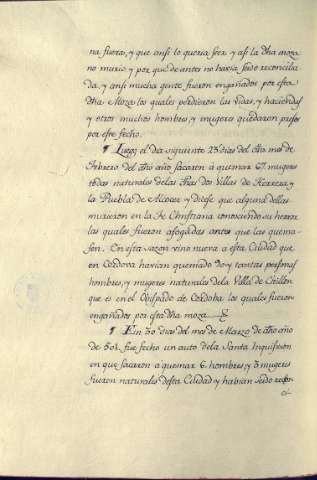 na fuera, y que ansi lo queria ser y asi la dha moza
no murio, y por que de antes no havia sido reconcilia
da, y ansi mucha gente fueron engañados por esta
dha Moza los quales perdieron las vidas, y haciendas
y otros muchos hombres, y mugeres quedaron presos
por este fecho.
¶ Luego el dia siguiente 23 dias del dho mes de
Febrero del dho año sacaron à quemar 67 mugeres
todas naturales de las dhas dos Villas de Herrera, y
la Puebla de Alcocer y dizese que alguna dellas
murieron en la Fe Christiana conociendo su herror
las quales fueron afogadas antes que las quema
sen. En esta sazon vino nueva a esta Ciudad que
en Cordova havian quemado 90 y tantas personas
hombres, y mugeres naturales de la Villa de Chillon
que es en el Obispado de Cordoba los quales fueron
engañados por esta dha moza
¶ En 30 dias del mes de Marzo de dho año
de 501. fue fecho un auto de la Santa Inquisicion
en que sacaron a quemar 6 hombres, y 3 mugeres
fueron naturales desta Ciudad y habian sido recon
ci-